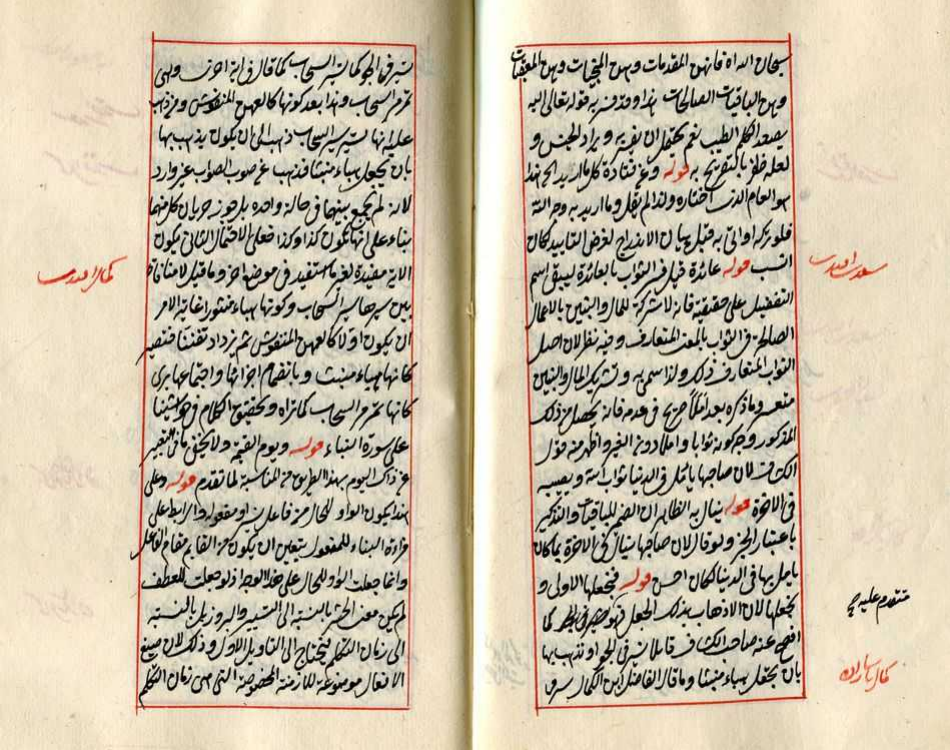 سبحان الله اه فانهن المقدمات وهن المجنبات وهن المعقبات
وهن الباقيات الصالحات هذا وقد فسر به قوله تعالى اليه
يصعد الكلم الطيب نعم يحتمل ان يفسر به ويراد الجنس و
لعله ظفر بالتصريح به قوله وعن قتادة كل ما اريد الخ هذا
هو العام الذى اختاره ولذا لم يقل وما اريد به وجه الله
فلو تركه او اتى به قبيل بيان الاندراج لغرض التاييد لكان
انسب قوله عائدة قيل فسر الثواب بالعائدة ليبقى اسم
التفضيل على حقيقته فانه لا شركة للمال والبنين بالاعمال
الصالحة فى الثواب بالمعنى المتعارف وفيه نظر لان اصل
الثواب المتعارف ذلك ولذا سمى به وتشريك المال والبنين
متعسر وما ذكره بعد املا صريح فى عدمه فانه يحصل من ذلك
المذكور وجه كونه ثوابا واملا دون الغير واظهر منه قول
الكشاف لان صاحبها يامل فى الدنيا ثواب الله ويصيبه
فى الاخرة قوله ينال به الظاهر ان الضمير للباقيات والتذكير
باعتبار الخبر ولو قال لان صاحبها ينال فى الاخرة بها ما كان
يامل بها فى الدنيا لكان احسن قوله فنجعلها الاولى و
نجعلها لان الاذهاب بذلك الجعل كما
افصح عنه صاحب الكشاف قائلا نسير فى الجو او نذهب بها
بان نجعل هباء منبثا وما قال الفاضل ابن الكمال
سعدى افندى
متقدم عليه صح
كمال پاشا زاده
تسير فى الجو كما تسير السحاب كما قال فى اية اخرى وهى
تمر مر السحاب وهذا بعد كونها كالعهن المنفوش ومن ذهب
على انها تسير سير السحاب ذهب الى ان يكون يذهب بها
بان نجعل هباء منبثا فذهب عن صوب الصواب غير وارد
لانه لم يجمع بينهما فى حالة واحدة بل جوز جريان كل منهما
بناء على انها تكون كذا وكذا فعلى الاحتمال الثانى يكون
الاية مفيدة لغير ما استفيد فى موضع اخر وما قيل لا منافاة
بين سيرها سير السحاب وكونها هباء منثورا غاية الامر
ان يكون اولا كالعهن المنفوش ثم يزداد تفتتا فتصير
كانها هباء منبث وبانضمام اجزائها واجتماعها يرى
كانها تمر مر السحاب كما تراه وتحقيق الكلام فى حواشينا
على سورة النباء قوله ويوم القيمة ولا يخفى ما فى التعبير
عن ذاك اليوم بهذا الطريق من المناسبة لما تقدم قوله وعلى
هذا يكون الواو للحال من فاعل نسير او مفعوله والرابط على
قراءة البناء للمفعول يتعين ان يكون من القايم مقام الفاعل
وانما جعلت الواو للحال على هذا الوجه اذ لو جعلت للعطف
لم يكن معنى الحشر بالنسبة الى التسيير والبروز بل بالنسبة
الى زمان التكلم فيحتاج الى التاويل الاول وذلك لان صيغ
الافعال موضوعة للازمنة المخصوصة التى هى زمان التكلم
كمال افندى